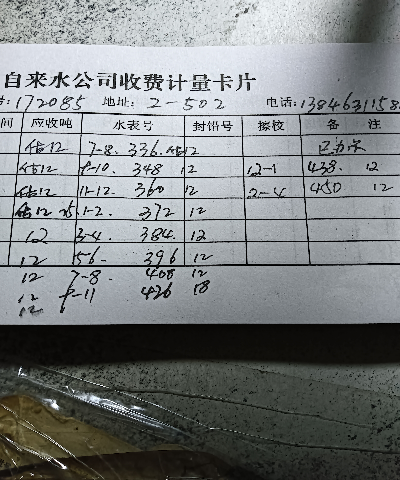 自来水公司收费计量卡片
172085 地址: 2-502 电话: 1384631158
间 应收吨 水表号 封铅号 搪校 备 注
估12 7-8. 336. 估12
估12 9-10. 348 12 12-1 438. 12
估12 11-12. 360 12 2-4 450 12
估12 1-2. 372 12
12 3-4. 384 12
12 5-6- 396 12
12 7-8. 408 12
12 9-11 426 18
12